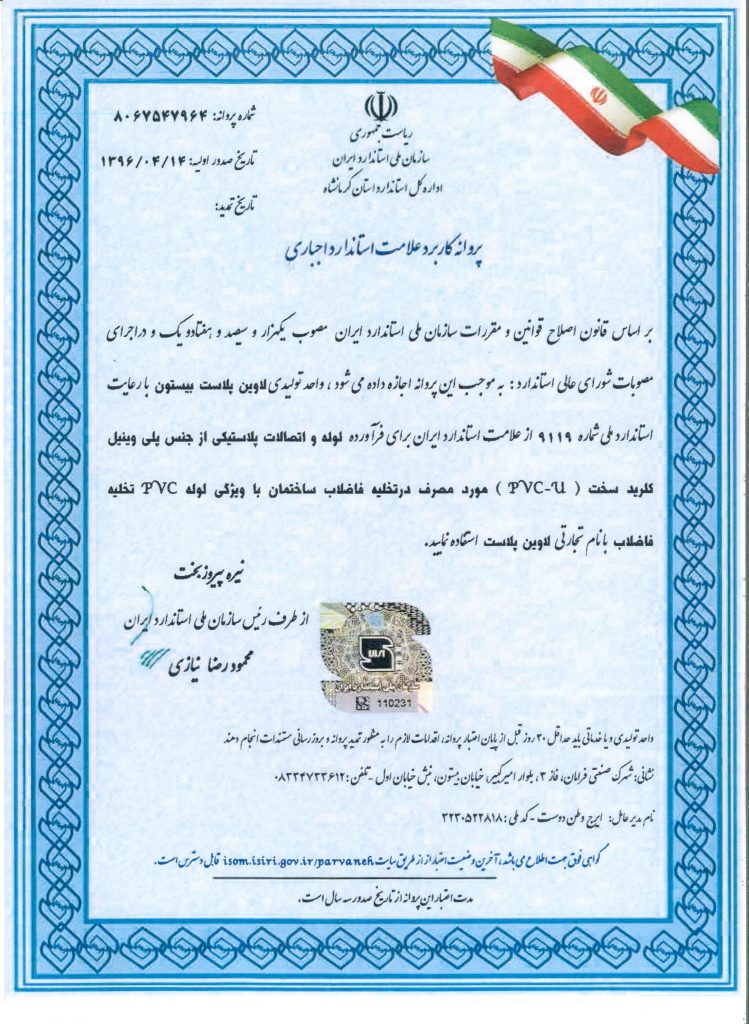 ریاست جمهوری
سازمان ملی استاندارد ایران
اداره کل استاندارد استان کرمانشاه
شماره پروانه: ۸۰۶۷۵۴۷۹۶۴
تاریخ صدور اولیه: ۱۳۹۶/۰۴/۱۴
تاریخ تمدید:
پروانه کاربرد علامت استاندارد اجباری
بر اساس قانون اصلاح قوانین و مقررات سازمان ملی استاندارد ایران مصوب یکهزار و سیصد و هفتاد و یک و در اجرای
مصوبات شورای عالی استاندارد: به موجب این پروانه اجازه داده می شود، واحد تولیدی لاوین پلاست بیستون با رعایت
استاندارد ملی شماره ۹۱۱۹ از علامت استاندارد ایران برای فرآورده لوله و اتصالات پلاستیکی از جنس پلی وینیل
کلرید سخت ( PVC-U ) مورد مصرف درتخلیه فاضلاب ساختمان با ویژگی لوله PVC تخلیه
فاضلاب با نام تجارتی لاوین پلاست استفاده نمایید.
نیره پیروزبخت
از طرف رئیس سازمان ملی استاندارد ایران
محمود رضا نیازی
ISIRI
سازمان ملی استاندارد ایران
110231
واحد تولیدی و یا خدماتی باید حداقل ۳۰ روز قبل از پایان اعتبار پروانه، اقدامات لازم را به منظور تمدید پروانه و بروزرسانی مستندات انجام دهند
نشانی: شهرک صنعتی فرامان، فاز ۳، بلوار امیرکبیر، خیابان بیستون، نبش خیابان اول - تلفن: ۰۸۳۳۴۷۳۳۶۱۲
نام مدیر عامل: ایرج وطن دوست - کد ملی: ۳۲۳۰۵۲۲۸۱۸
گواهی فوق جهت اطلاع می باشد، آخرین وضعیت اعتبار از از طریق سایت isom.isiri.gov.ir/parvaneh قابل دسترس است.
مدت اعتبار این پروانه از تاریخ صدور سه سال است.